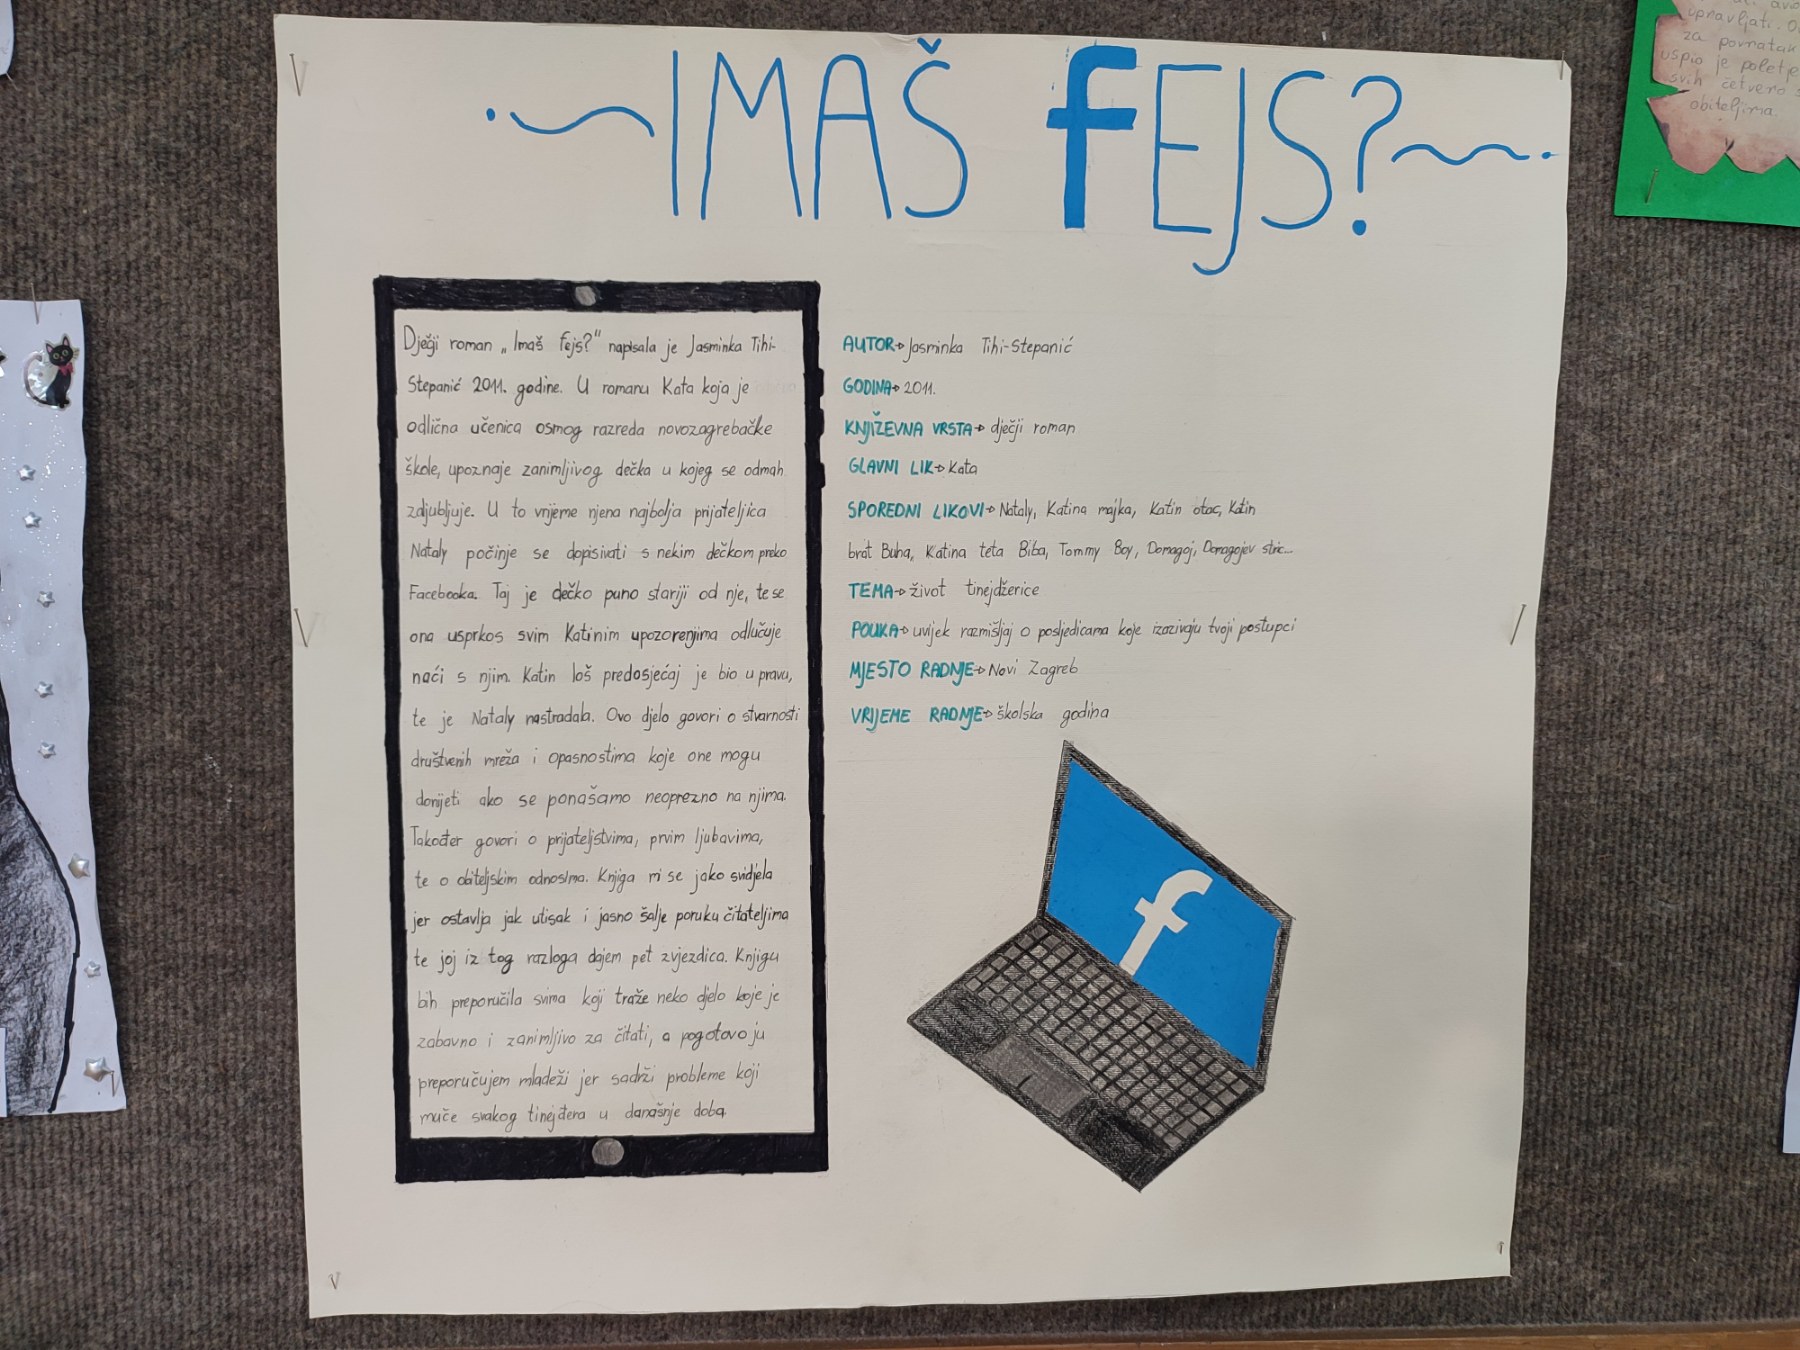 IMAŠ fEJS?
Dječji roman „Imaš fejs?" napisala je Jasminka Tihi-
Stepanić 2011. godine. U romanu Kata koja je
odlična učenica osmog razreda novozagrebačke
škole, upoznaje zanimljivog dečka u kojeg se odmah
zaljubljuje. U to vrijeme njena najbolja prijateljica
Nataly počinje se dopisivati s nekim dečkom preko
Facebooka. Taj je dečko puno stariji od nje, te se
ona usprkos svim Katinim upozorenjima odlučuje
naći s njim. Katin loš predosjećaj je bio u pravu,
te je Nataly nastradala. Ovo djelo govori o stvarnosti
društvenih mreža i opasnostima koje one mogu
donijeti ako se ponašamo neoprezno na njima.
Također govori o prijateljstvima, prvim ljubavima,
te o obiteljskim odnosima. Knjiga mi se jako svidjela
jer ostavlja jak utisak i jasno šalje poruku čitateljima
te joj iz tog razloga dajem pet zvjezdica. Knjigu
bih preporučila svima koji traže neko djelo koje je
zabavno i zanimljivo za čitati, a pogotovo ju
preporučujem mladeži jer sadrži probleme koji
muče svakog tinejđera u današnje doba.
AUTOR→Jasminka Tihi-Stepanić
GODINA→2011.
KNJIŽEVNA VRSTA→dječji roman
GLAVNI LIK→Kata
SPOREDNI LIKOVI→Nataly, Katina majka, Katin otac, Katin
brat Buha, Katina teta Biba, Tommy Boy, Domagoj, Domagojev stric...
TEMA→život tinejdžerice
POUKA→uvijek razmišljaj o posljedicama koje izazivaju tvoji postupci
MJESTO RADNJE→Novi Zagreb
VRIJEME RADNJE→školska godina
f
upravljati.
za povratak
uspio je poletje
svih četvero s
obiteljima.